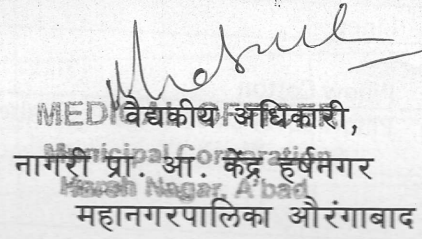 MEDICAL OFFICER
वैद्यकीय अधिकारी,
Municipal Corporation
नागरी प्रा. आ. केंद्र हर्षनगर
Harsh Nagar, A'bad
महानगरपालिका औरंगाबाद